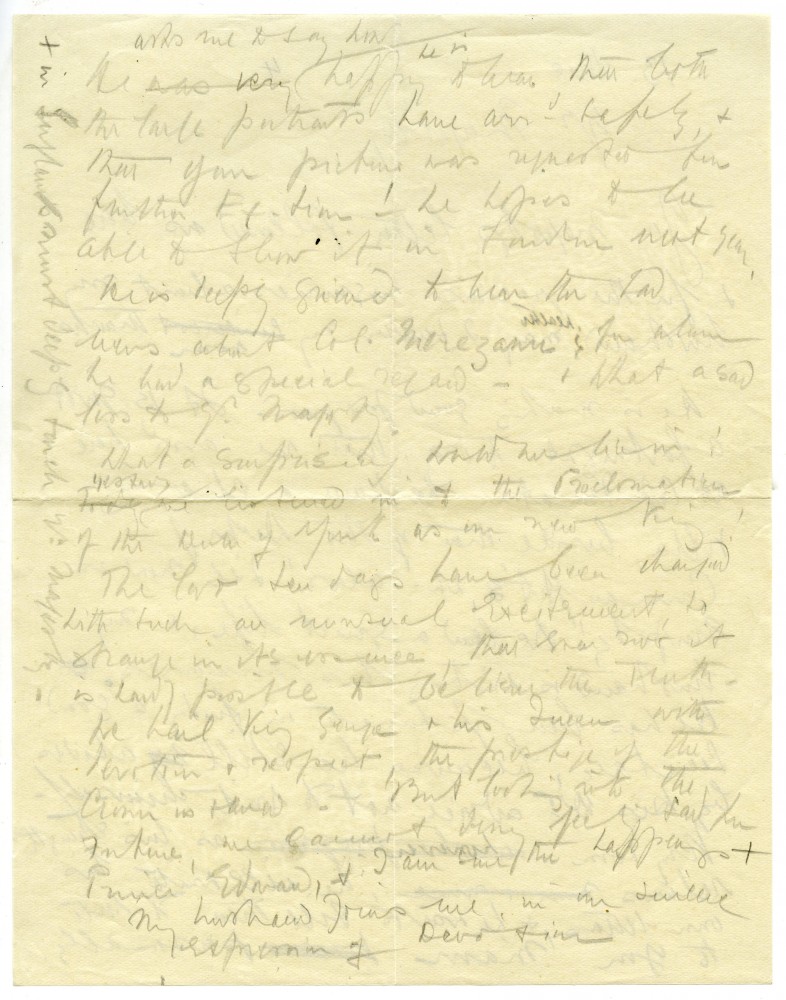 asks me to say how
He was very happy he is to hear that both
the large portraits have arr'd safely, &
that your picture was requested for
further Ex-tion! he hopes to be
able to show it in London next year,
He is deeply grieved to hear the sad
news about Col. health for whom
he had a special regard – & what a sad
loss to Yr. Majesty.
What a surprising world we live in!
yesterday we listened in to the Proclamation
of the Duke of York as our new King!
The last ten days have been charged
with such an unusual excitement, so
strange in its essence, that even now it
is hardly possible to believe the truth –
We hail King George & his Queen with
devotion & respect the prestige of the
Crown is saved – But looking into the
future, we cannot deny feel sad for
Prince Edward, & I am sure the happenings +
My husband joins me in our
My expression of Devotion
+ in England must deeply touch Yr. Majesty.